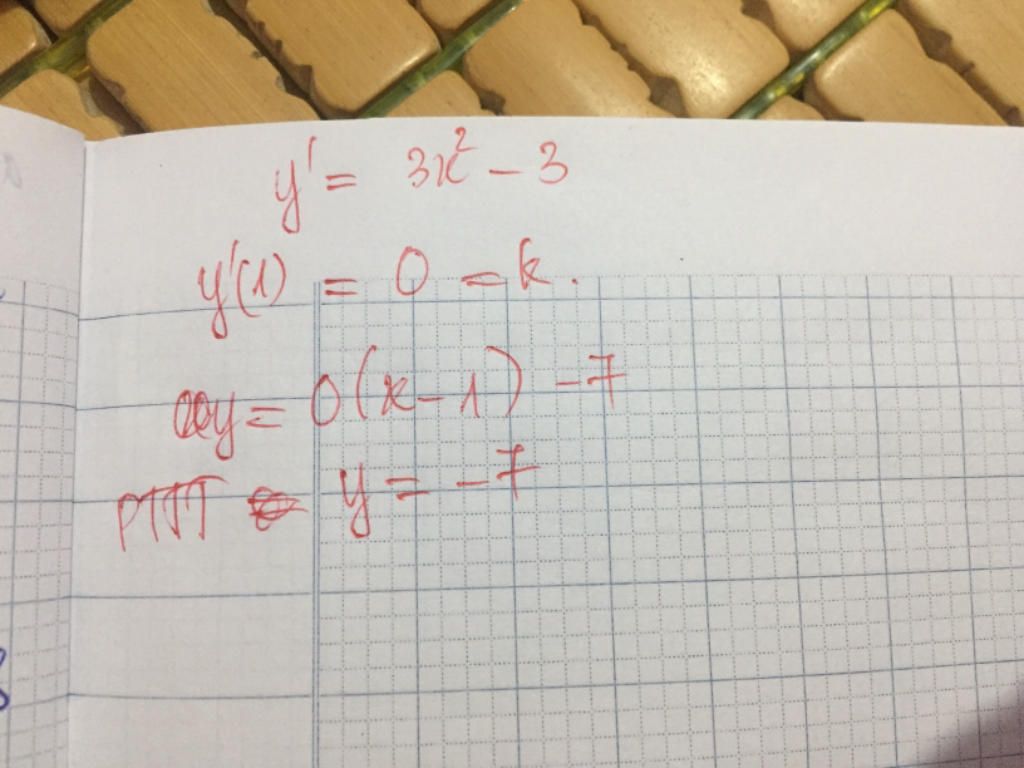 y' = 3x² - 3
y'(1) = 0 = k.
y = 0(x-1) -7
PTTT y = -7